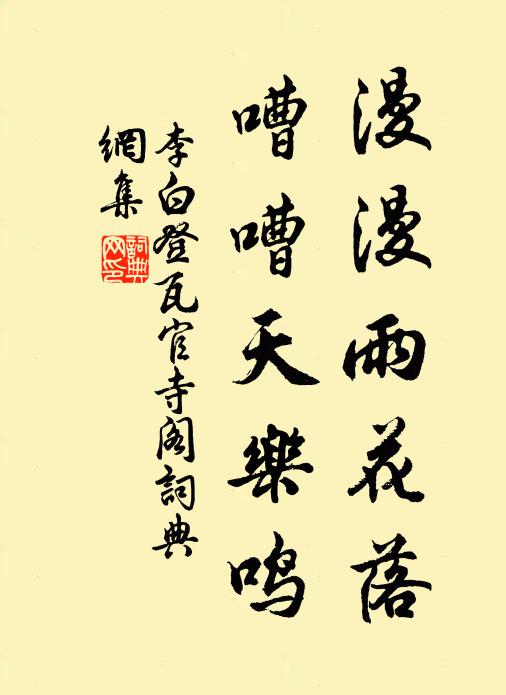 漫漫雨花落
嘈嘈天樂鳴
李白登瓦官寺阁詞典
網集
詞典网印